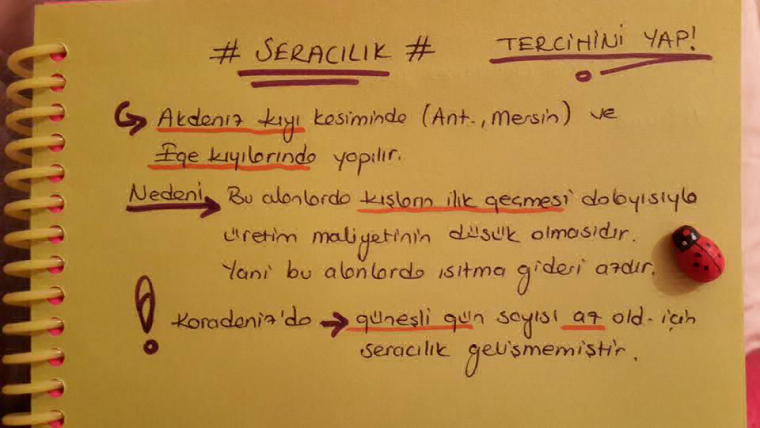 # SERACILIK #
TERCİHİNİ YAP!
Akdeniz kıyı kesiminde (Ant., Mersin) ve
Ege kıyılarında yapılır.
Nedeni Bu alanlarda kışların ılık geçmesi dolayısıyla
üretim maliyetinin düşük olmasıdır.
Yani bu alanlarda ısıtma gideri azdır.
! Karadeniz'de → güneşli gün sayısı az old. için
seracılık gelişmemiştir.